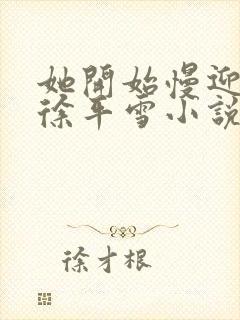 她開始慢迎
徐平雪小說
徐才根